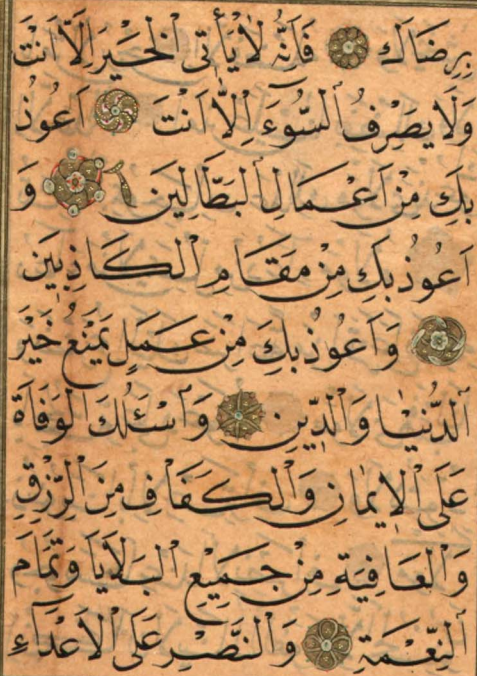 بِرِضَاكَ فَاِنَّهُ لَا يَأْتِى الْخَيْرَ اِلَّا اَنْتَ
وَلَا يَصْرِفُ السُّوءَ اِلَّا اَنْتَ اَعُوذُ
بِكَ مِنْ اَعْمَالِ الْبَطَّالِينَ وَ
اَعُوذُ بِكَ مِنْ مَقَامِ الْكَاذِبِينَ
وَاَعُوذُ بِكَ مِنْ عَمَلٍ يَمْنَعُ خَيْرَ
الدُّنْيَا وَالدِّينِ وَاَسْئَلُكَ الْوَفَاةَ
عَلَى الْاِيمَانِ وَالْكَفَافِ مِنَ الرِّزْقِ
وَالْعَافِيَةِ مِنْ جَمِيعِ الْبَلَايَا وَتَمَامِ
النِّعْمَةِ وَالنَّصْرِ عَلَى الْاَعْدَاءِ